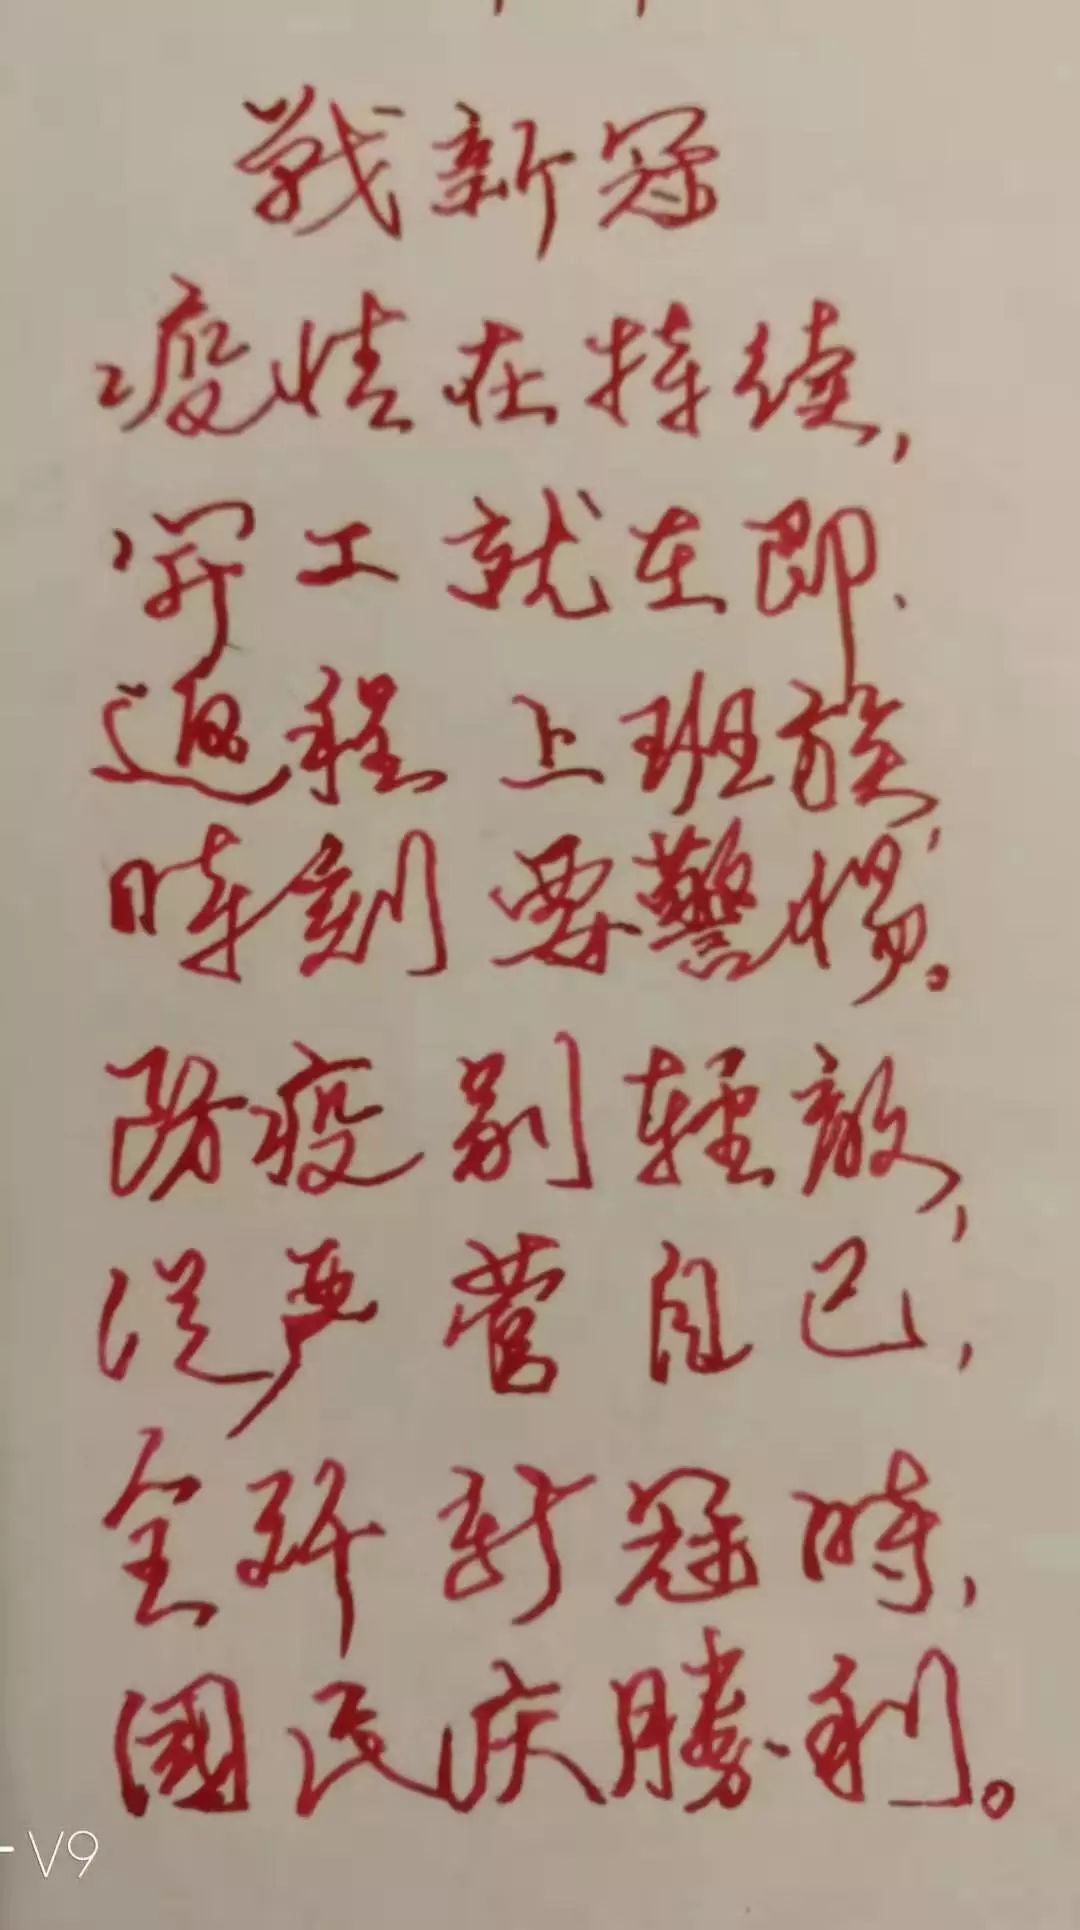 戰新冠
疫情在持续,
開工就在即.
返程上班族,
時刻要警惕。
防疫别輕敵,
從严管自己,
全歼新冠時,
國民庆勝利。
V9